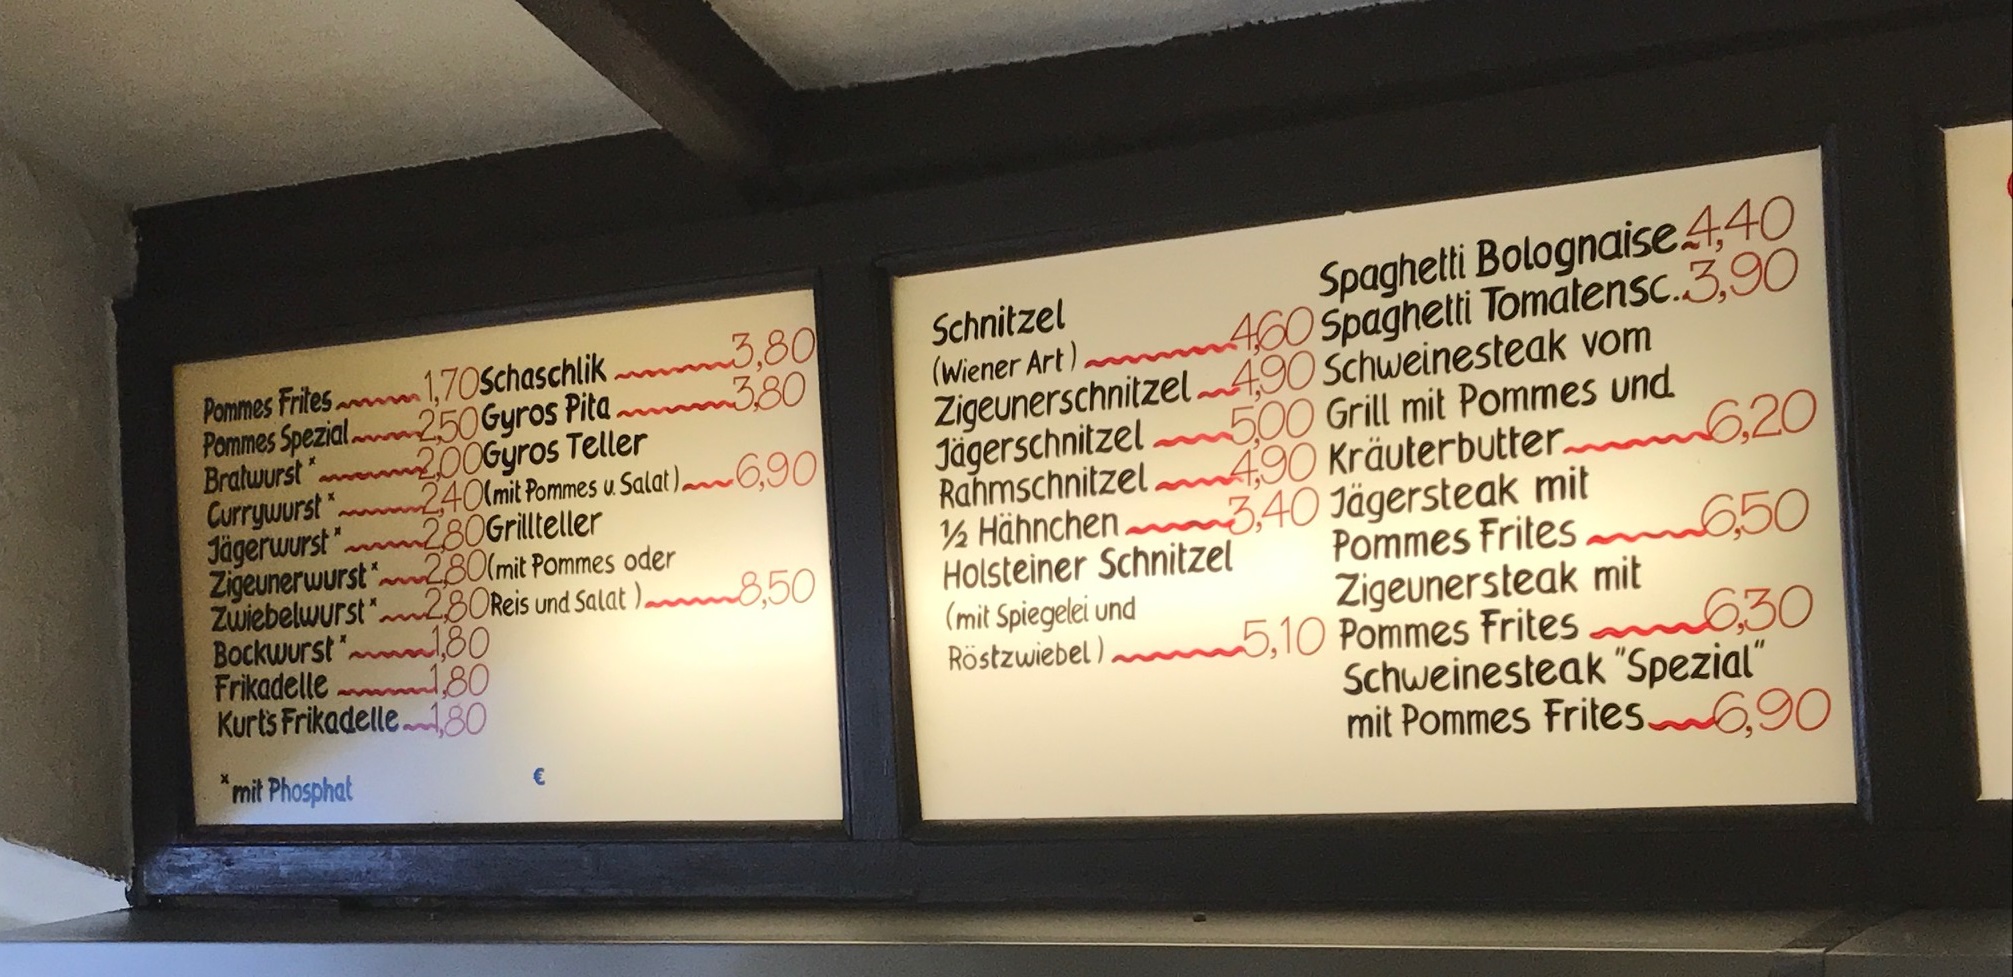 Pommes Frites 1,70
Pommes Spezial 2,50
Bratwurst* 2,00
Currywurst* 2,40
Jägerwurst* 2,80
Zigeunerwurst* 2,80
Zwiebelwurst* 2,80
Bockwurst* 1,80
Frikadelle 1,80
Kurt's Frikadelle 1,80
*mit Phosphat
€
Schaschlik 3,80
Gyros Pita 3,80
Gyros Teller
(mit Pommes u. Salat) 6,90
Grillteller
(mit Pommes oder
Reis und Salat) 8,50
Schnitzel
(Wiener Art) 4,60
Zigeunerschnitzel 4,90
Jägerschnitzel 5,00
Rahmschnitzel 4,90
½ Hähnchen 3,40
Holsteiner Schnitzel
(mit Spiegelei und
Röstzwiebel) 5,10
Spaghetti Bolognaise 4,40
Spaghetti Tomatensc. 3,90
Schweinesteak vom
Grill mit Pommes und
Kräuterbutter 6,20
Jägersteak mit
Pommes Frites 6,50
Zigeunersteak mit
Pommes Frites 6,30
Schweinesteak "Spezial"
mit Pommes Frites 6,90